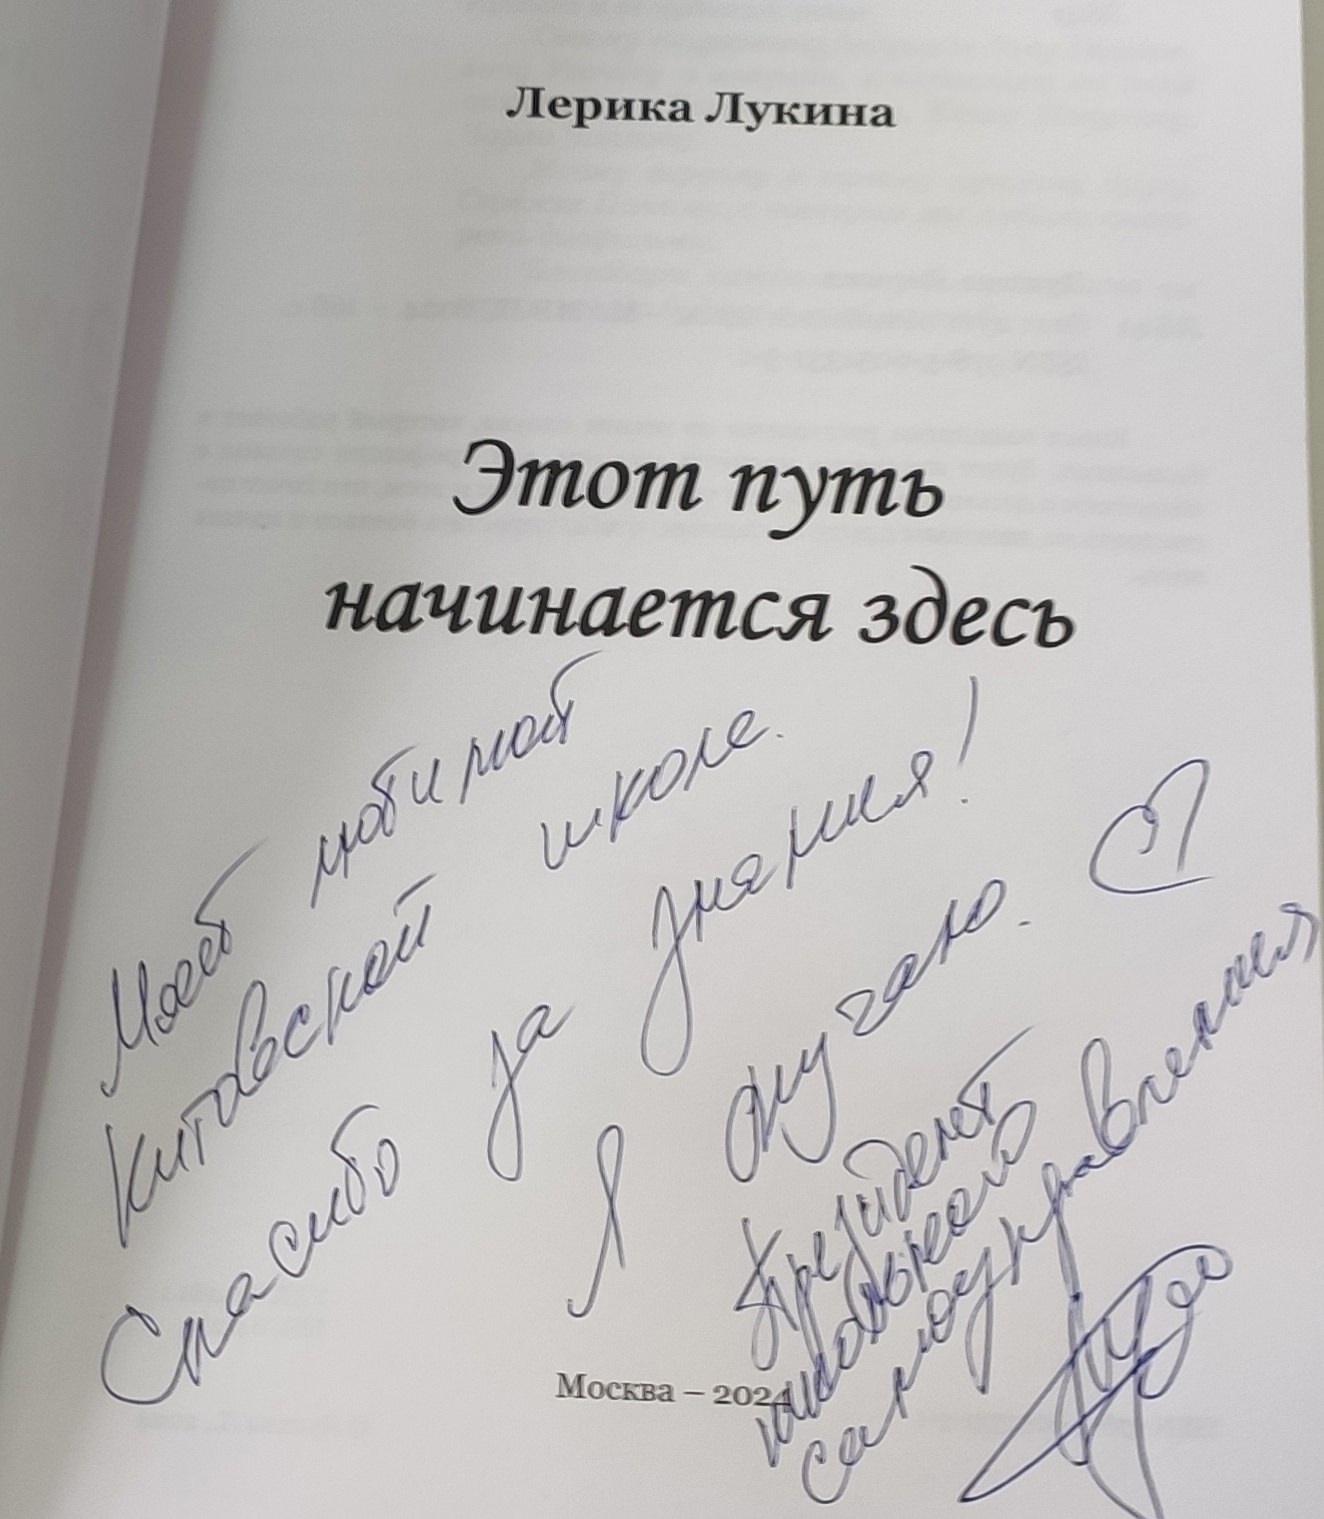 Лерика Лукина
Этот путь
начинается здесь
Моей любимой
Китовской школе.
Спасибо за знания!
Я скучаю.
Президент
школьного
самоуправления
Москва – 2024